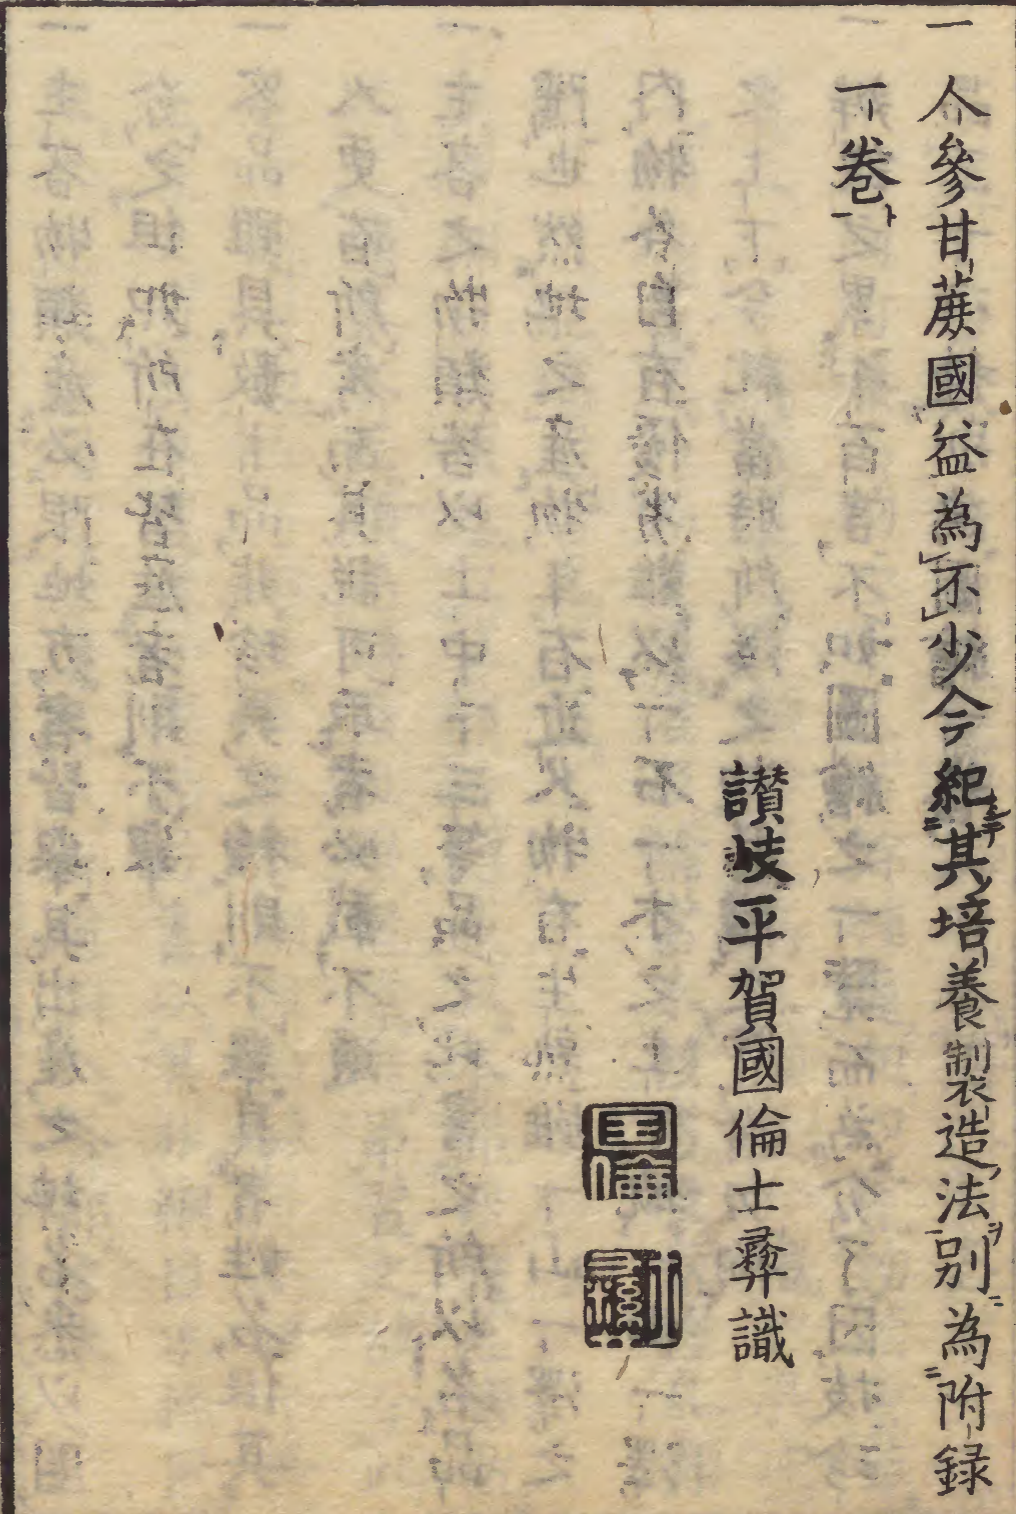 一 人參甘蔗國益為不少今紀其培養製造法別為附録
一卷
讃岐平賀國倫士彜識
國倫
士彜